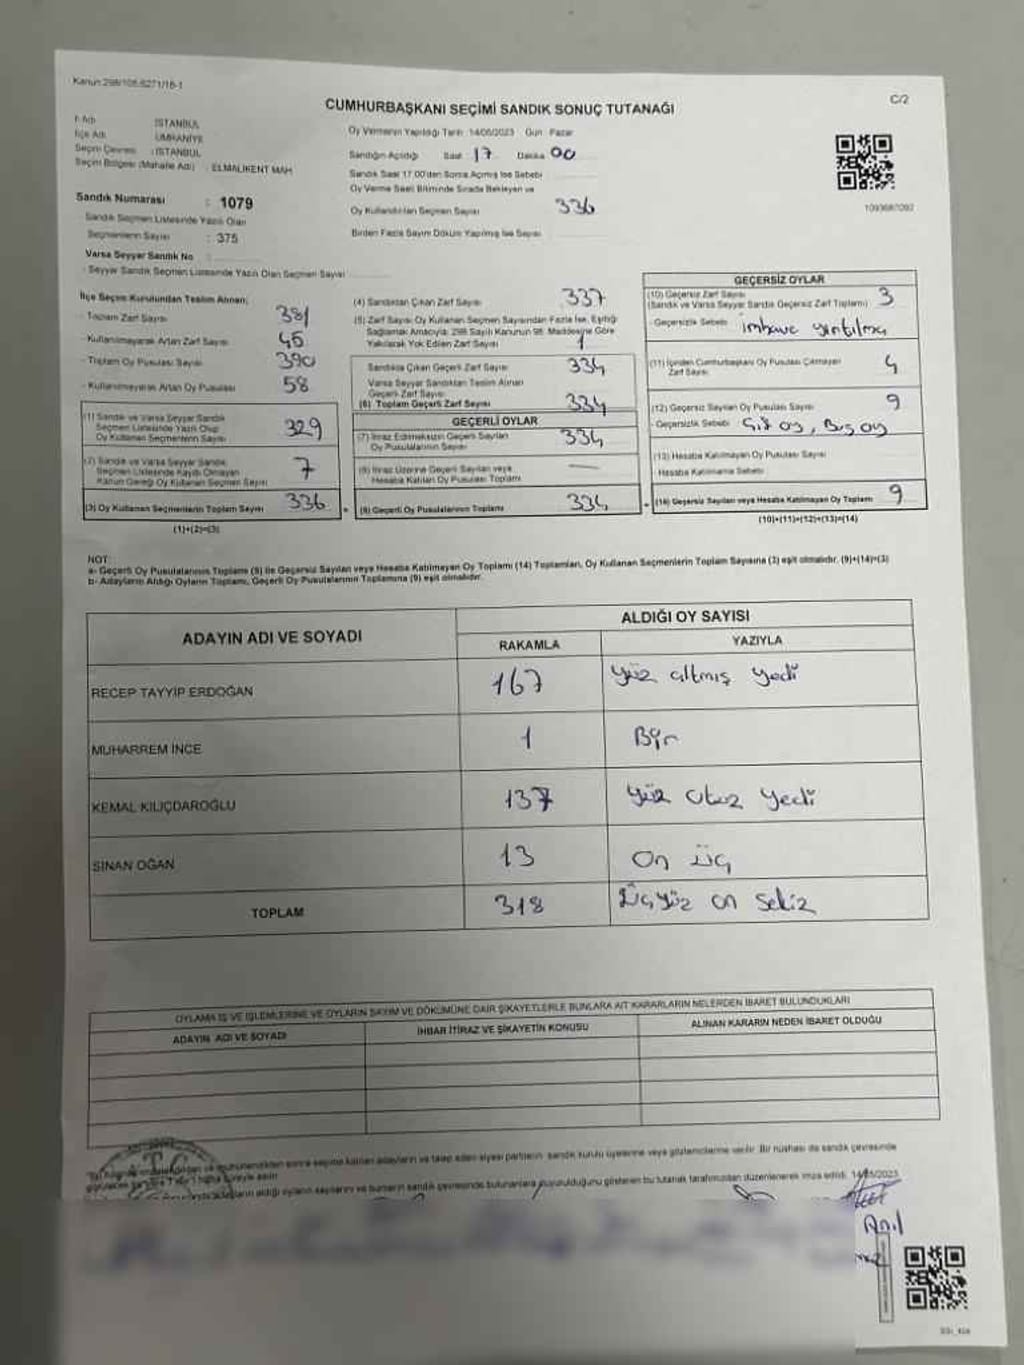 Kanun:298/105-6271/16-1
C/2
CUMHURBAŞKANI SEÇİMİ SANDIK SONUÇ TUTANAĞI
İl Adı : İSTANBUL
İlçe Adı : ÜMRANİYE
Seçim Çevresi : İSTANBUL
Seçim Bölgesi (Mahalle Adı) : ELMALIKENT MAH
Sandık Numarası : 1079
Sandık Seçmen Listesinde Yazılı Olan
Seçmenlerin Sayısı : 375
Varsa Seyyar Sandık No :
- Seyyar Sandık Seçmen Listesinde Yazılı Olan Seçmen Sayısı
Oy Vermenin Yapıldığı Tarih: 14/05/2023 Gün : Pazar
Sandığın Açıldığı Saat : 17 Dakika 00
Sandık Saat 17.00'den Sonra Açılmış İse Sebebi
Oy Verme Saati Bitiminde Sırada Bekleyen ve
Oy Kullandırılan Seçmen Sayısı 336
Birden Fazla Sayım Döküm Yapılmış İse Sayısı
1093687092
İlçe Seçim Kurulundan Teslim Alınan;
- Toplam Zarf Sayısı 381
- Kullanılmayarak Artan Zarf Sayısı 45
- Toplam Oy Pusulası Sayısı 390
- Kullanılmayarak Artan Oy Pusulası 58
(1) Sandık ve Varsa Seyyar Sandık
Seçmen Listesinde Yazılı Olup
Oy Kullanan Seçmenlerin Sayısı 329
(2) Sandık ve Varsa Seyyar Sandık
Seçmen Listesinde Kaydı Olmayan
Kanun Gereği Oy Kullanan Seçmen Sayısı 7
(3) Oy Kullanan Seçmenlerin Toplam Sayısı 336
(1)+(2)=(3)
(4) Sandıktan Çıkan Zarf Sayısı 337
(5) Zarf Sayısı Oy Kullanan Seçmen Sayısından Fazla İse, Eşitliği
Sağlamak Amacıyla; 298 Sayılı Kanunun 98. Maddesine Göre
Yakılarak Yok Edilen Zarf Sayısı 1
Sandıkta Çıkan Geçerli Zarf Sayısı 334
Varsa Seyyar Sandıktan Teslim Alınan
Geçerli Zarf Sayısı
(6) Toplam Geçerli Zarf Sayısı 334
GEÇERLİ OYLAR
(7) İtiraz Edilmeksizin Geçerli Sayılan
Oy Pusulası Sayısı 334
(8) İtiraz Üzerine Geçerli Sayılan veya
Hesaba Katılan Oy Pusulası Toplamı —
(9) Geçerli Oy Pusulalarının Toplamı 334
GEÇERSİZ OYLAR
(10) Geçersiz Zarf Sayısı 3
(Sandık ve Varsa Seyyar Sandık Geçersiz Zarf Toplamı)
- Geçersizlik Sebebi : imhave yırtılma
(11) İçinden Cumhurbaşkanı Oy Pusulası Çıkmayan
Zarf Sayısı 4
(12) Geçersiz Sayılan Oy Pusulası Sayısı 9
- Geçersizlik Sebebi : Çift oy, Boş oy
(13) Hesaba Katılmayan Oy Pusulası Sayısı
- Hesaba Katılmama Sebebi
(14) Geçersiz Sayılan veya Hesaba Katılmayan Oy Toplamı 9
(10)+(11)+(12)+(13)=(14)
NOT:
a- Geçerli Oy Pusulalarının Toplamı (9) ile Geçersiz Sayılan veya Hesaba Katılmayan Oy Toplamı (14) Toplamları, Oy Kullanan Seçmenlerin Toplam Sayısına (3) eşit olmalıdır. (9)+(14)=(3)
b- Adayların Aldığı Oyların Toplamı, Geçerli Oy Pusulalarının Toplamına (9) eşit olmalıdır.
ADAYIN ADI VE SOYADI
ALDIĞI OY SAYISI
RAKAMLA YAZIYLA
RECEP TAYYİP ERDOĞAN 167 Yüz altmış yedi
MUHARREM İNCE 1 Bir
KEMAL KILIÇDAROĞLU 137 Yüz otuz yedi
SİNAN OĞAN 13 On üç
TOPLAM 318 Üçyüz on sekiz
OYLAMA İŞ VE İŞLEMLERİNE VE OYLARIN SAYIM VE DÖKÜMÜNE DAİR ŞİKAYETLERLE BUNLARA AİT KARARLARIN NELERDEN İBARET BULUNDUKLARI
ADAYIN ADI VE SOYADI İHBAR İTİRAZ VE ŞİKAYETİN KONUSU ALINAN KARARIN NEDEN İBARET OLDUĞU
sonra seçime katılan adayların ve talep eden siyasi partilerin sandık kurulu üyelerine veya gözlemcilerine verilir. Bir nüshası da sandık çevresinde
adayların aldığı oyların sayılarını ve bunların sandık çevresinde bulunanlara duyurulduğunu gösteren bu tutanak tarafımızdan düzenlenerek imza edildi. 14/05/2023
T.C.
Anıl